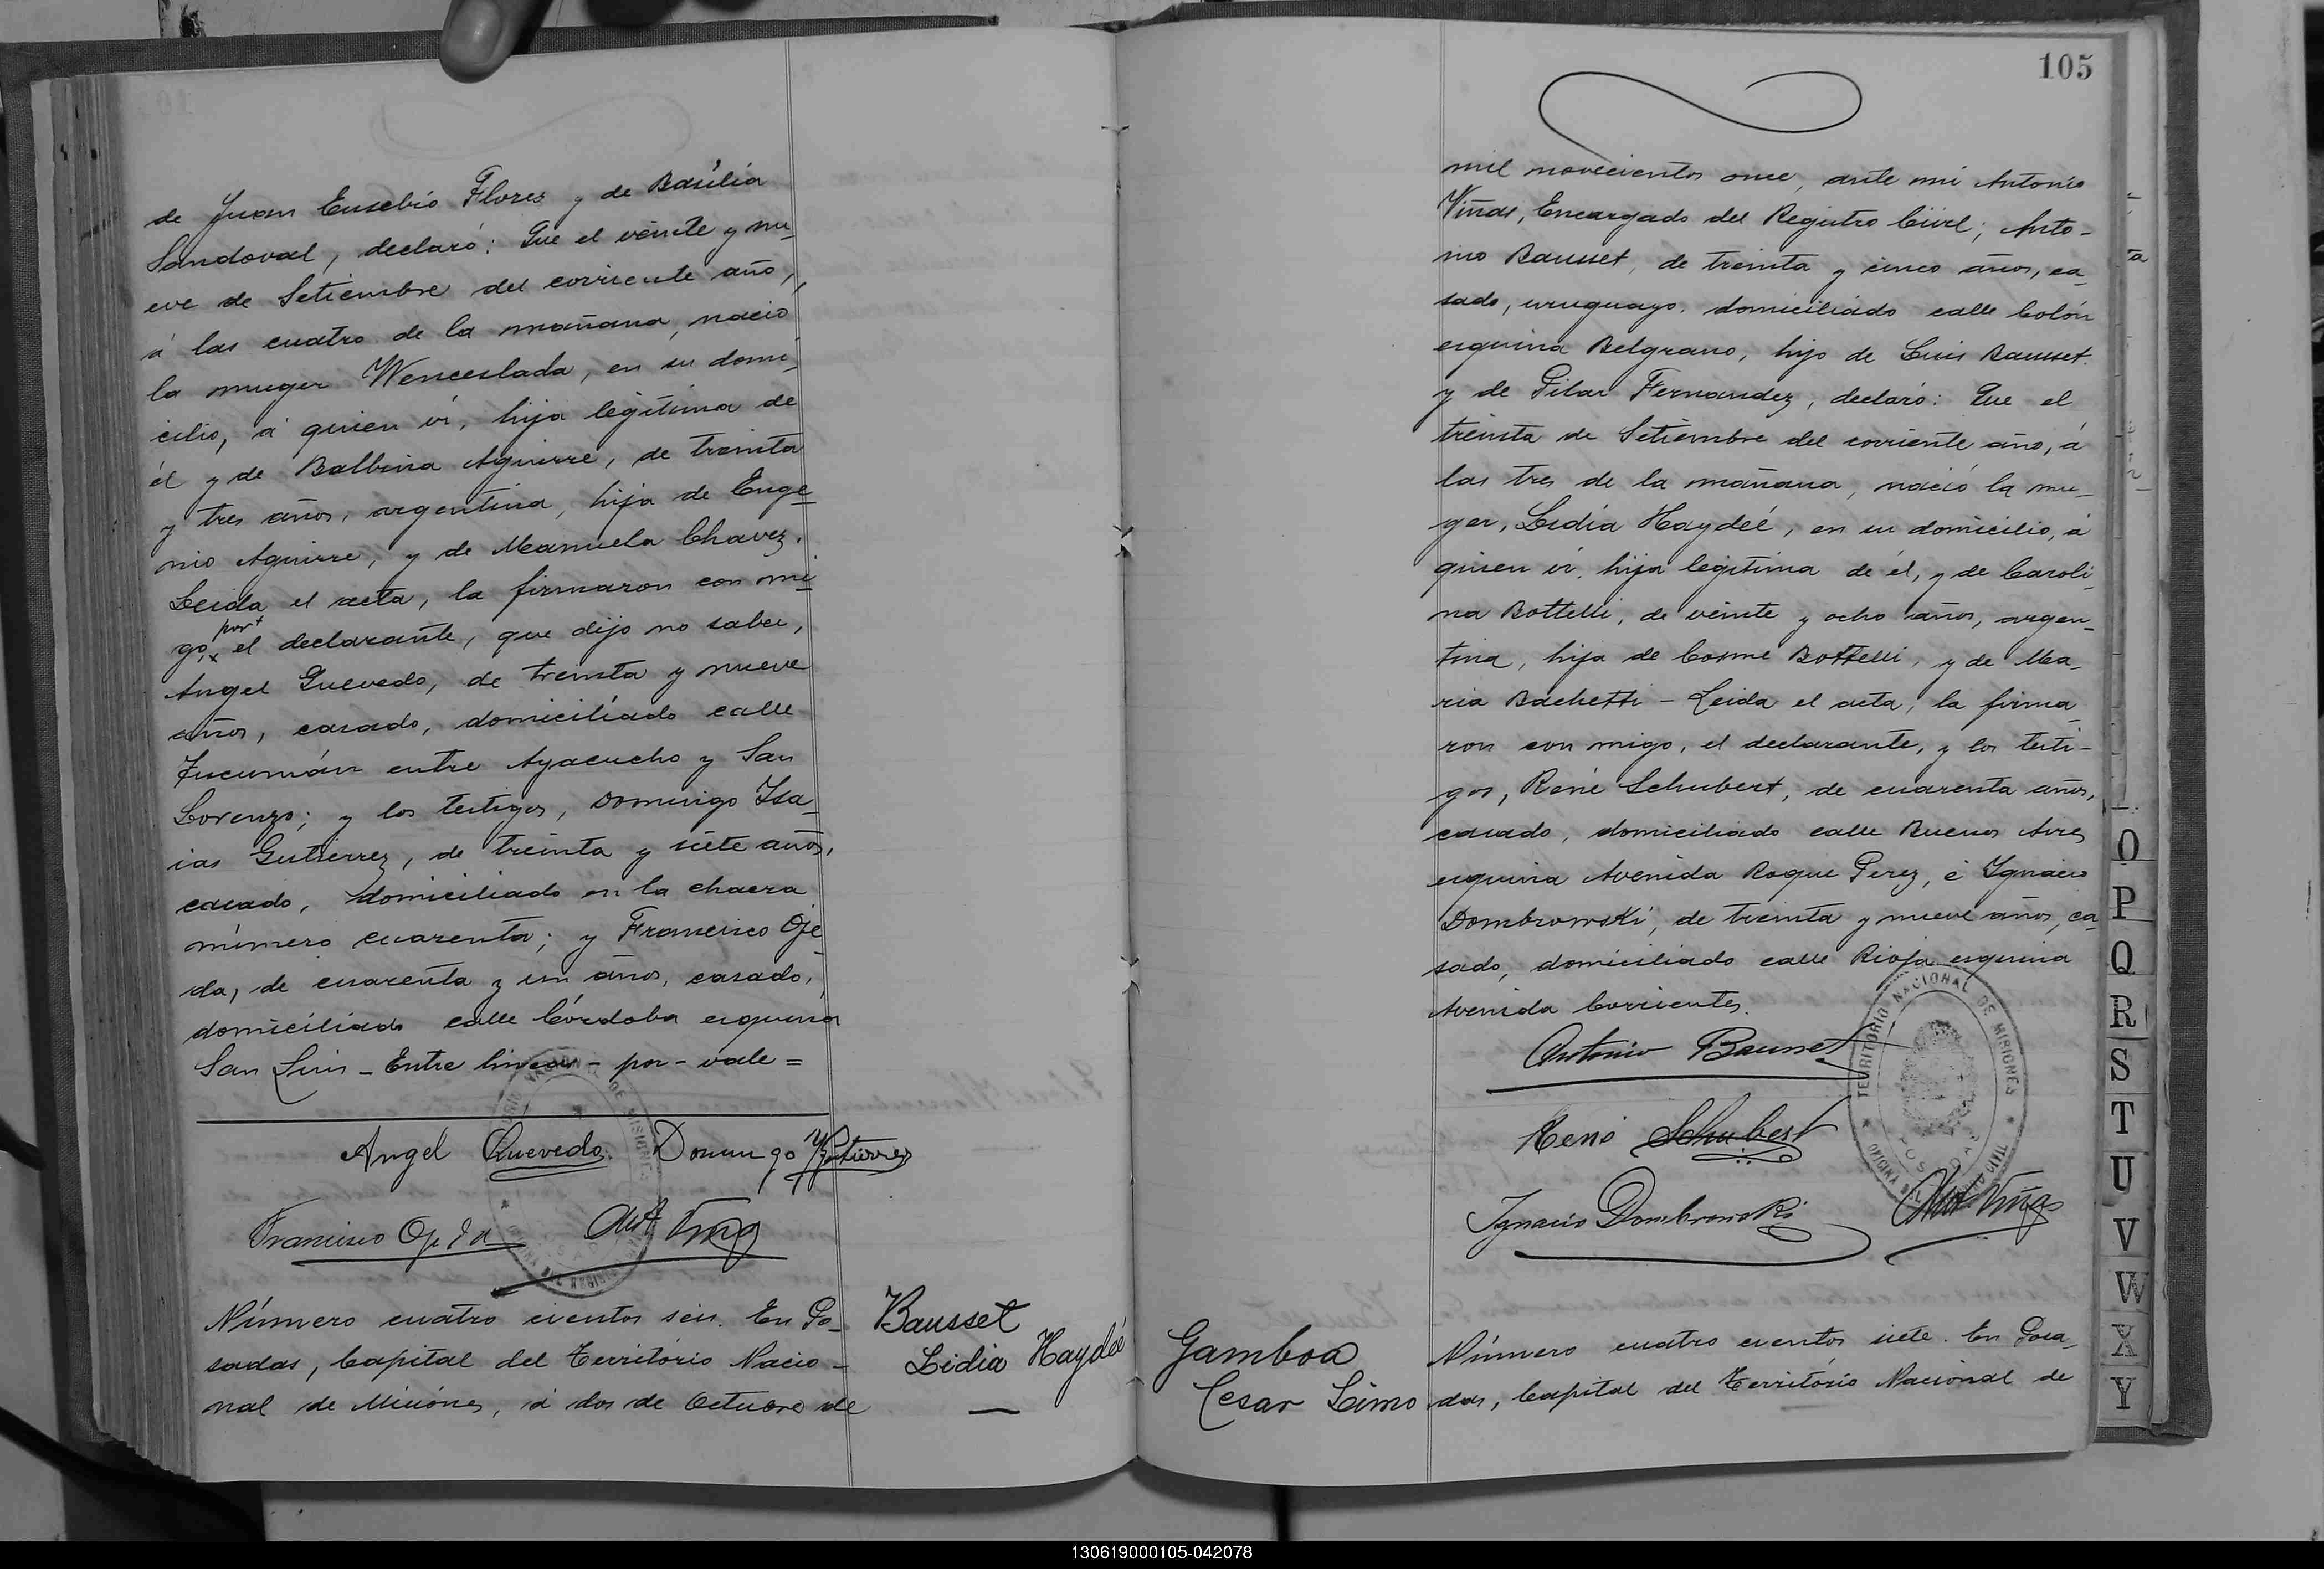 de Juan Eusebio Flores y de Basilia
Sandoval, declaró: Que el veinte y nu-
eve de Setiembre del corriente año,
á las cuatro de la mañana, nació
la muger Wenceslada, en su domi-
cilio, á quien ví, hija legítima de
él y de Balbina Aguirre, de treinta
y tres años, argentina, hija de Euge-
nio Aguirre, y de Manuela Chavez.
Leida el acta, la firmaron con mi-
por+
go,x el declarante, que dijo no saber,
Angel Quevedo, de treinta y nueve
años, casado, domiciliado calle
Tucumán entre Ayacucho y San
Lorenzo; y los testigos, Domingo Isa-
ias Gutierrez, de treinta y siete años,
casado, domiciliado en la chacra
número cuarenta; y Francisco Oje-
da, de cuarenta y un años, casado,
domiciliado calle Córdoba esquina
San Luis - Entre lineas - por - vale =
Angel Quevedo. Domingo Y Gutierrez
Francisco Ojeda Ant Viñas
Número cuatro cientos seis. En Po-
sadas, Capital del Territorio Nacio-
nal de Misiónes, á dos de Octubre de
Bausset
Lidia Haydeé
105
mil novecientos once, ante mi Antonio
Viñas, Encargado del Registro Civil; Anto-
nio Bausset, de treinta y cinco años, ca-
sado, uruguayo, domiciliado calle Colón
esquina Belgrano, hijo de Luis Bausset
y de Pilar Fernandez, declaró: Que el
treinta de Setiembre del corriente año, á
las tres de la mañana, nació la mu-
ger, Lidia Haydeé, en su domicilio, á
quien ví, hija legítima de él, y de Caroli-
na Bottelli, de veinte y ocho años, argen-
tina, hija de Cosme Bottelli, y de Ma-
ria Bachetti - Leida el acta, la firma-
ron con migo, el declarante, y los testi-
gos, René Schubert, de cuarenta años,
casado, domiciliado calle Buenos Aires
esquina Avenida Roque Perez, é Ignacio
Dombrowski, de treinta y nueve años, ca-
sado, domiciliado calle Rioja esquina
Avenida Corrientes.
TERRITORIO NACIONAL DE MISIONES
Antonio Bausset
René Schubert
Ignacio Dombrowski Ant Viñas
Gamboa
Cesar Limo
Número cuatro cientos siete. En Posa-
das, Capital del Territorio Nacional de
O
P
Q
R
S
T
U
V
W
X
Y
130619000105-042078